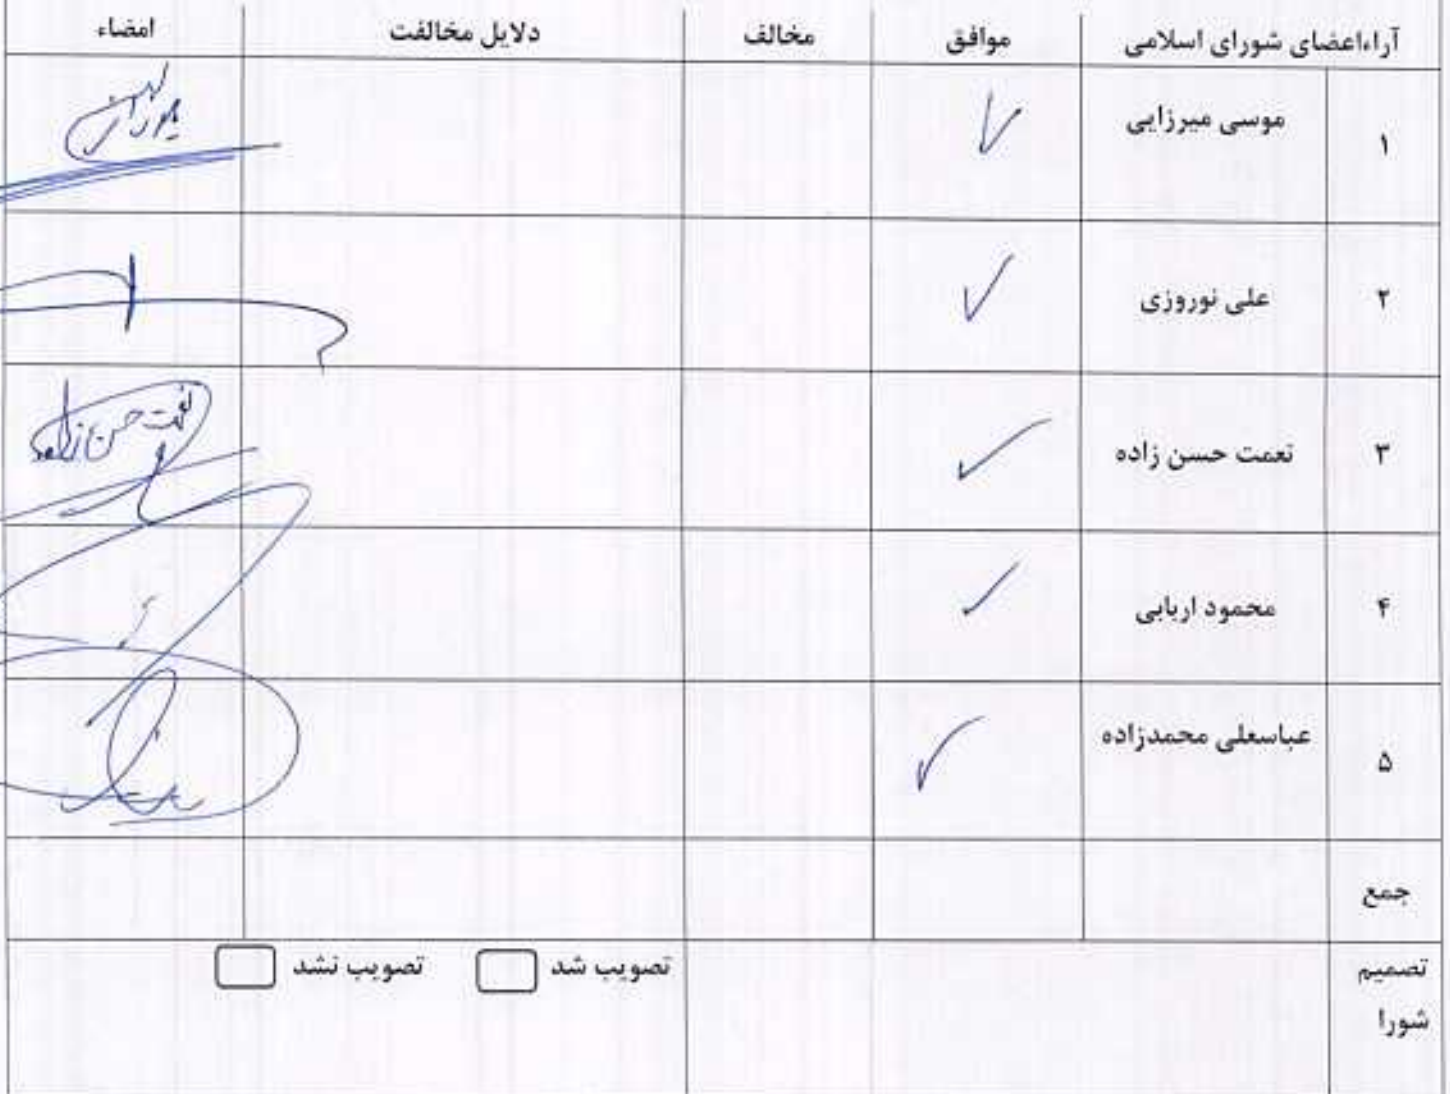 آراءاعضای شورای اسلامی موافق مخالف دلایل مخالفت امضاء
۱ موسی میرزایی
۲ علی نوروزی
۳ نعمت حسن زاده نعمت حسن زاده
۴ محمود اربابی
۵ عباسعلی محمدزاده
جمع
تصمیم تصویب شد تصویب نشد
شورا